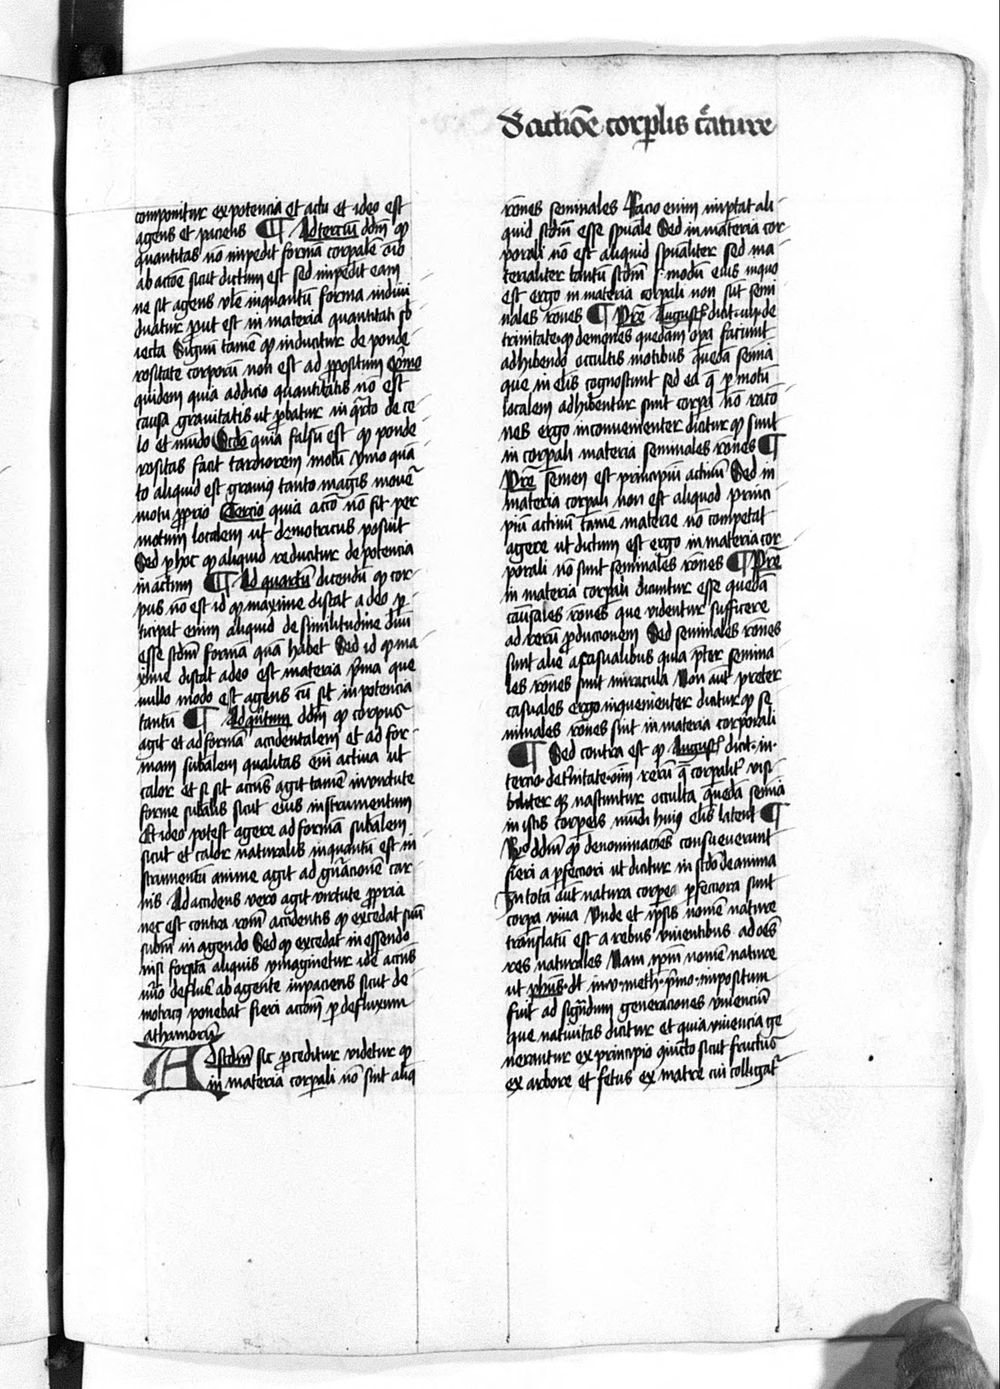 De actiõe corp̱lis c̃ature
componitur ex potencia et actu et ideo est
agens et paciens ¶ Ad terciũ dd̃m qꝫ
quantitas nõ impedit formã corpalẽ õio
ab actõe sicut dictum est sed impedit eam
ne sit agens vl̃e inquantũ forma indiui
duatur ꝓut est in materia quantitati sb
iecta Signũ tamẽ qꝫ inducitur de ponde
rositate corporũ non est ad ꝓpositum p̃mo
quidem quia addicio quantitatis nõ est
causa grauitatis ut ꝓbatur in q̃rto de ce
lo et mũdo Scd̃o quia falsũ est qꝫ ponde
rositas facit tardiorem motũ ymo quã
to aliquid est grauiꝰ tanto magis mouet̃
motu ꝓprio Tercio quia actõ nõ fit per
motum localem ut democritus posuit
Sed ꝑ hoc qꝫ aliquid reducitur de potencia
in actum ¶ Ad quartũ dicendũ qꝫ cor
pus nõ est id qꝫ maxime distat a deo ꝑ
ticipat enim aliquid de similitudine diuĩ
esse scdm̃ formã quã habet Sed id qꝫ ma
xime distat a deo est materia p̃ma que
nullo modo est agens cũ sit in potencia
tantũ ¶ Ad q̃ntum dd̃m qꝫ corpus
agit et ad formã accidentalem et ad for
mam sub̃alem qualitas eñi actiua ut
calor et si sit accñs agit tamẽ in virtute
forme sub̃alis sicut eius instrumentum
Et ideo potest agere ad formã sub̃alem
sicut et calor naturalis inquantũ est in
strumentũ anime agit ad gñacionẽ car
nis Ad accidens vero agit virtute ꝓpria
nec est contra rõnẽ accidentis qꝫ excedat suũ
subm̃ in agendo Sed qꝫ excedat in essendo
nisi forsitã aliquis ymaginetur idẽ accñs
nũo defluẽ ab agente in paciens sicut de
motricꝰ ponebat fieri actionẽ ꝑ defluxum
athamorũ
Ad scdm̃ sic ꝓceditur videtur qꝫ
in materia corpali nõ sint aliq̃
rõnes seminales Racio enim inportat ali
quid scdm̃ esse spũale Sed in materia cor
porali nõ est aliquid spũaliter sed ma
terialiter tantũ scdm̃ s. modũ eius in quo
est ergo in materia corpali non sũt semi
nales rõnes ¶ Prẽ Augustꝰ dicit .iij. de
trinitate qꝫ demones quedam oꝑa faciunt
adhibendo occultis motibus quedã semina
que in elis cognoscunt sed ea q̃ ꝑ motũ
localem adhibentur sunt corpa nõ racio
nes ergo inconuenienter dicitur qꝫ sint
in corpali materia seminales rõnes ¶
Prẽ semen est principiũ actiuũ Sed in
materia corpali non est aliquod princi
piũ actiuũ cum̃ materie nõ competat
agere ut dictum est ergo in materia cor
porali nõ sunt seminales rõnes ¶ Prẽ
in materia corpali dicuntur esse quedã
causales rõnes que videntur sufficere
ad rerũ ꝓductionem Sed seminales rõnes
sunt alie a causalibus quia p̃ter semina
les rõnes fiunt miracula Non aut̃ preter
causales ergo inquenienter dicitur qꝫ se
minales rõnes sint in materia corporali
¶ Sed contra est qꝫ Augustꝰ dicit in
tercio de t̃nitate oĩm rerũ q̃ corpalit̃ visi
biliter qꝫ nascuntur occulta quedã semina
in istis corpeis mũdi huiꝰ elis latent ¶
Rñ dd̃m qꝫ denominaciões consueuerunt
fieri a ꝑfectiori ut dicitur in scdo de anima
In tota aut̃ natura corpea ꝑfectiora sunt
corpa viua Unde et ip̃sis nomẽ nature
translatũ est a rebus viuentibus ad oẽs
res naturales Nam ip̃m nomẽ nature
ut ph̃us dt̃ in .v. meth. p̃mo impositum
fuit ad sigñdum generaciones viuenciũ
que natiuitas dicitur et quia viuencia ge
nerantur ex principio q̃iũcto sicut fructus
ex arbore et fetus ex matre cui colligat̃